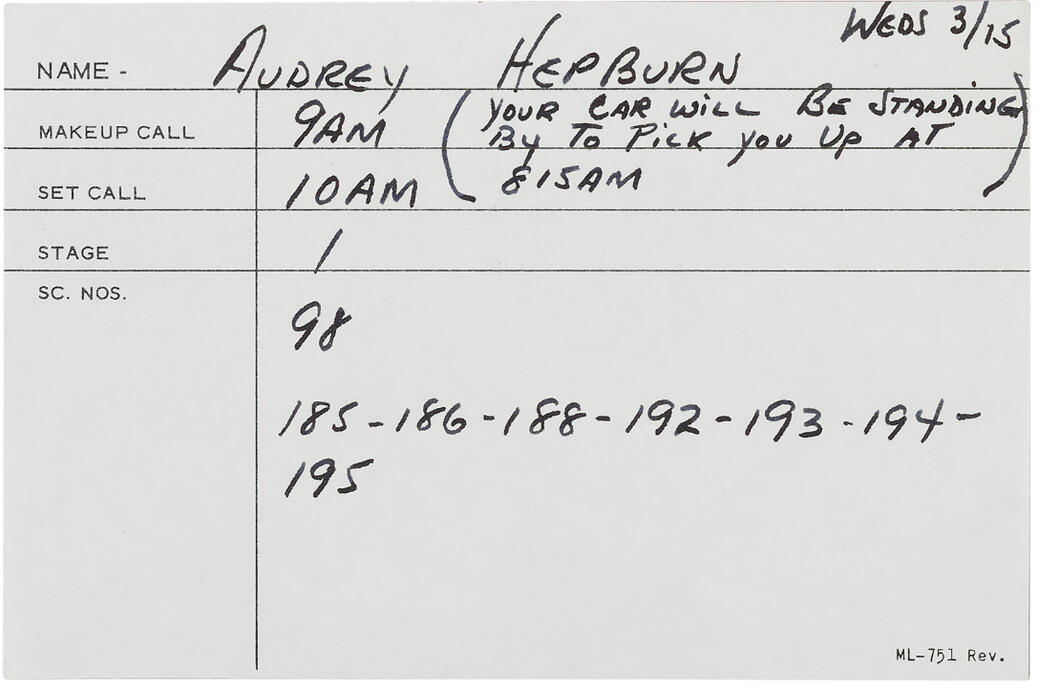 WEDS 3/15
NAME - AUDREY HEPBURN
MAKEUP CALL 9AM (YOUR CAR WILL BE STANDING
BY TO PICK YOU UP AT
SET CALL 10AM 815AM)
STAGE 1
SC. NOS.
98
185-186-188-192-193-194-
195
ML-751 Rev.